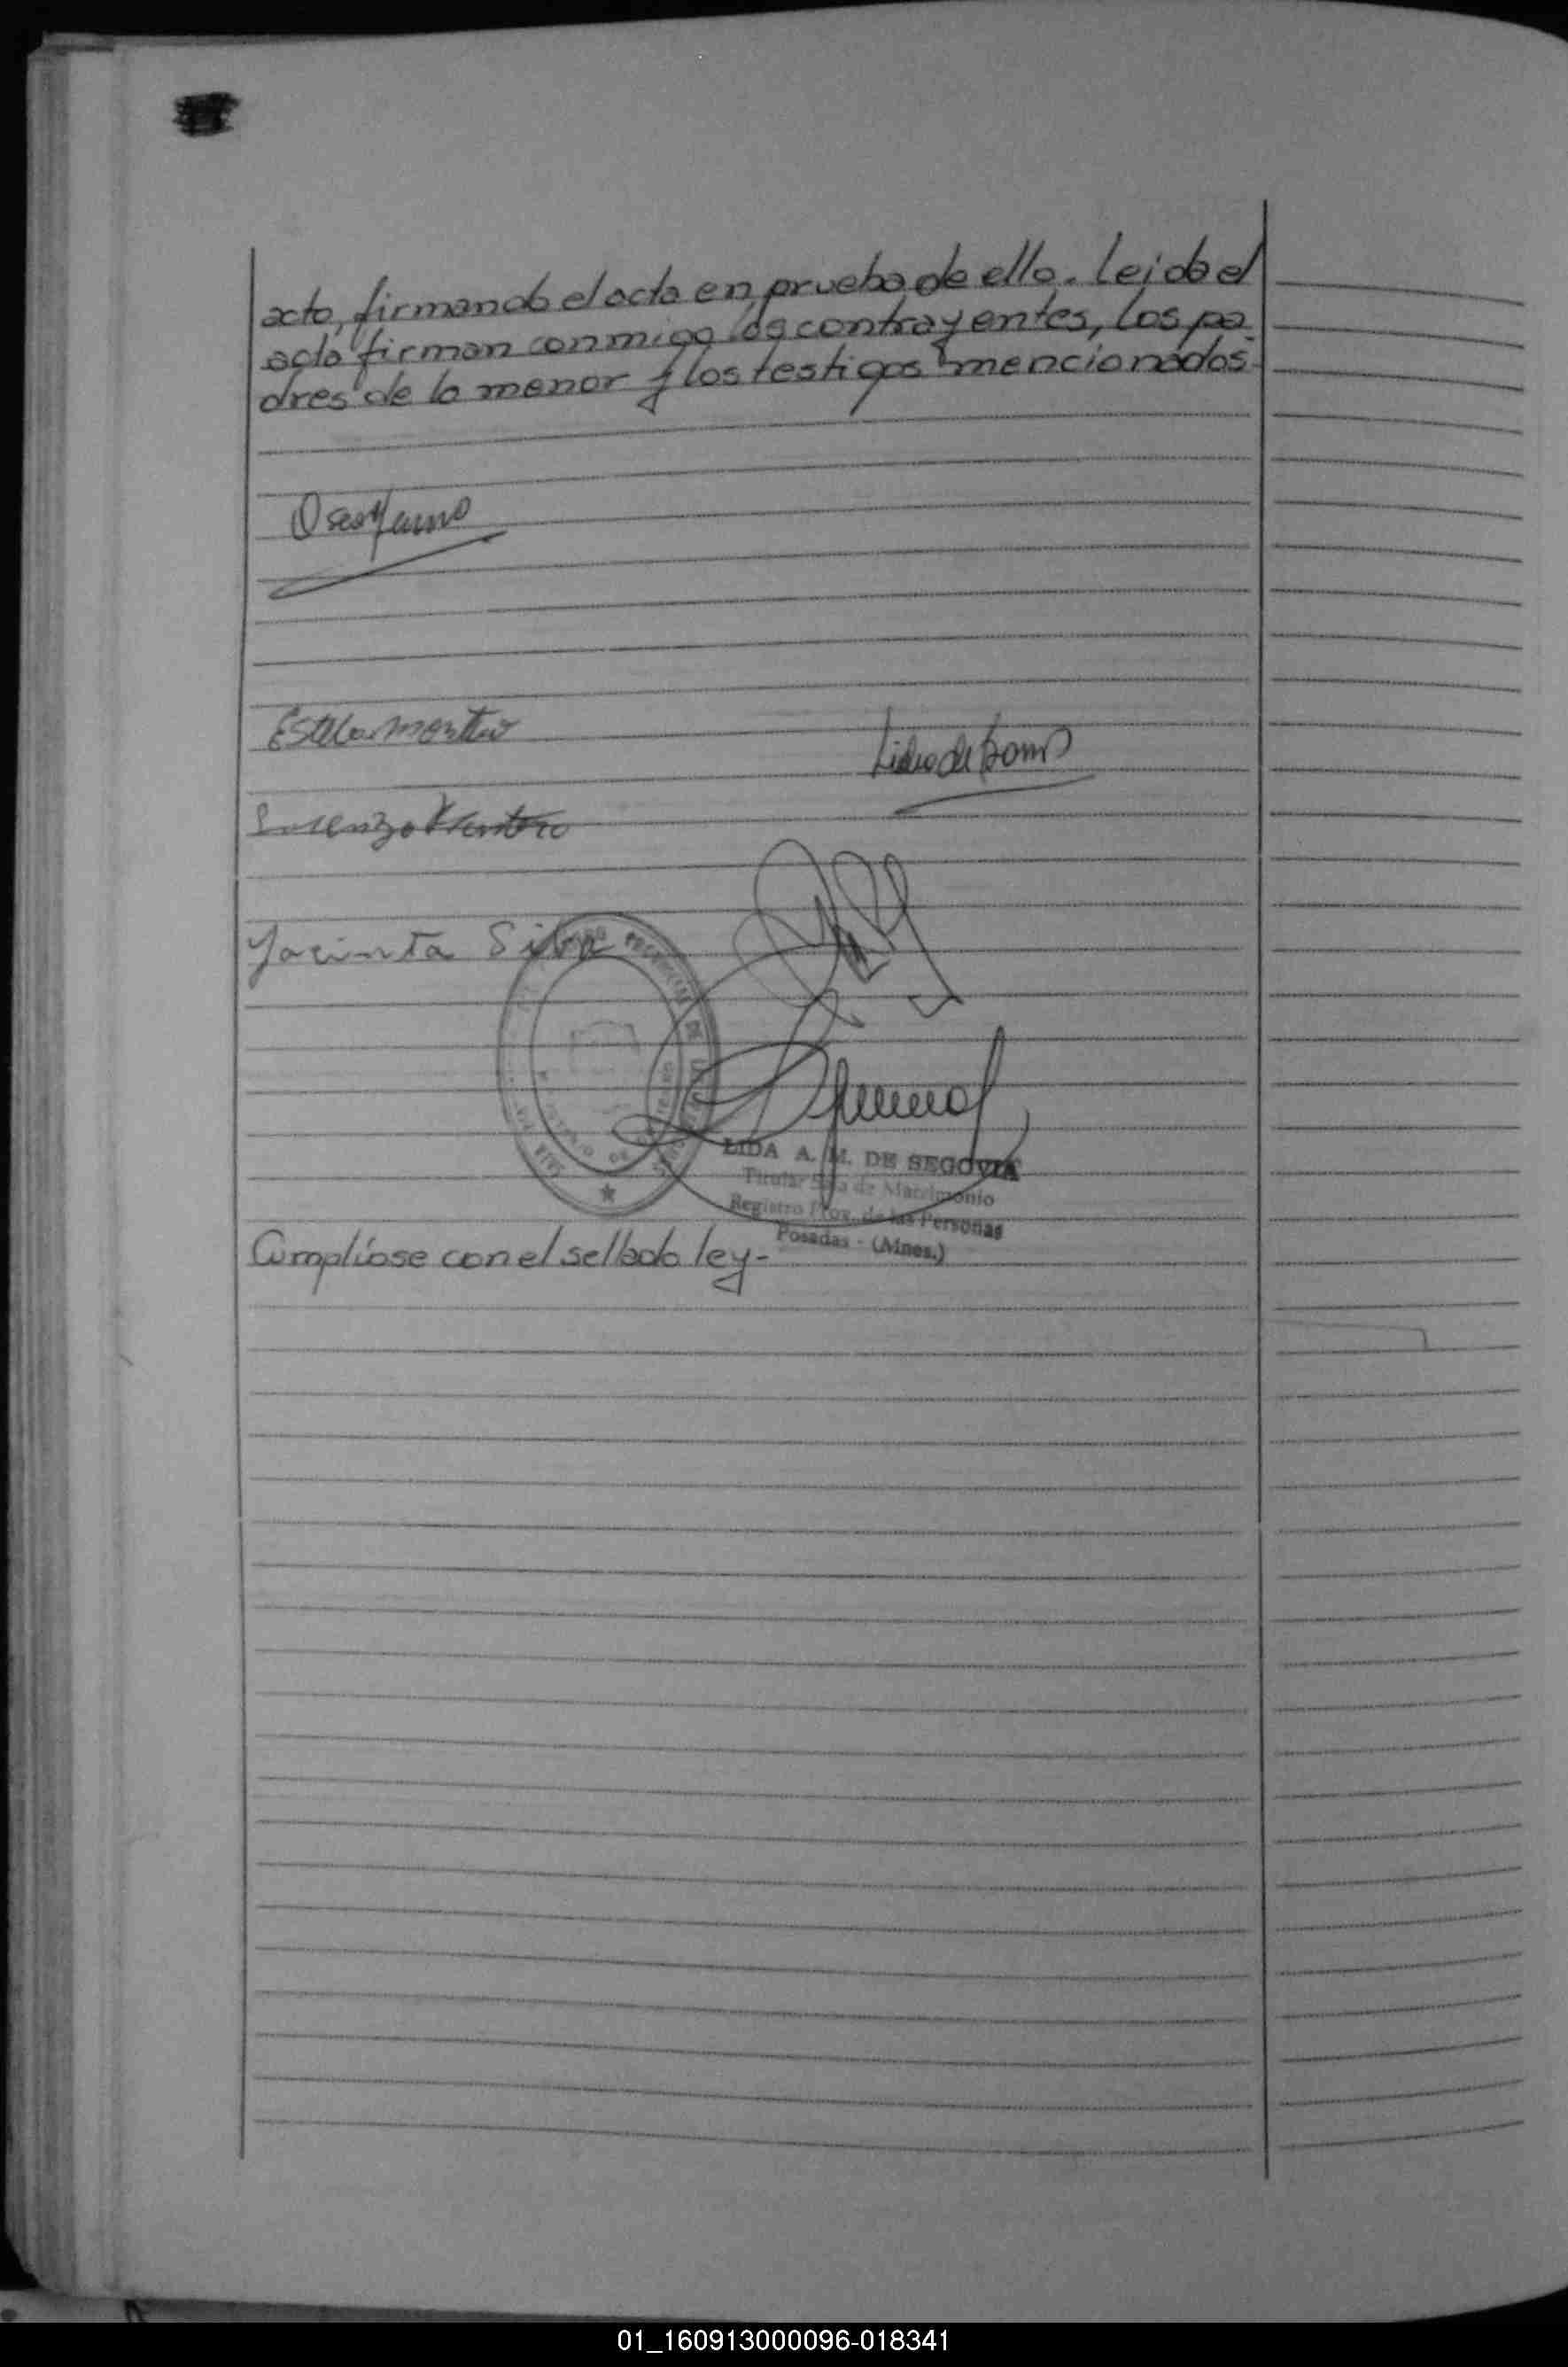 acto, firmando el acta en prueba de ello. Leida el
acta firman conmigo los contrayentes, los pa
dres de la menor y los testigos mencionados
Estela
Lidia de
Lorenzo
Jacinta Silva
LIDA A. M. DE SEGOVIA
Titular Sala de Matrimonio
Registro Prov. de las Personas
Posadas - (Mnes.)
Cumplíose con el sellado ley-
01_160913000096-018341